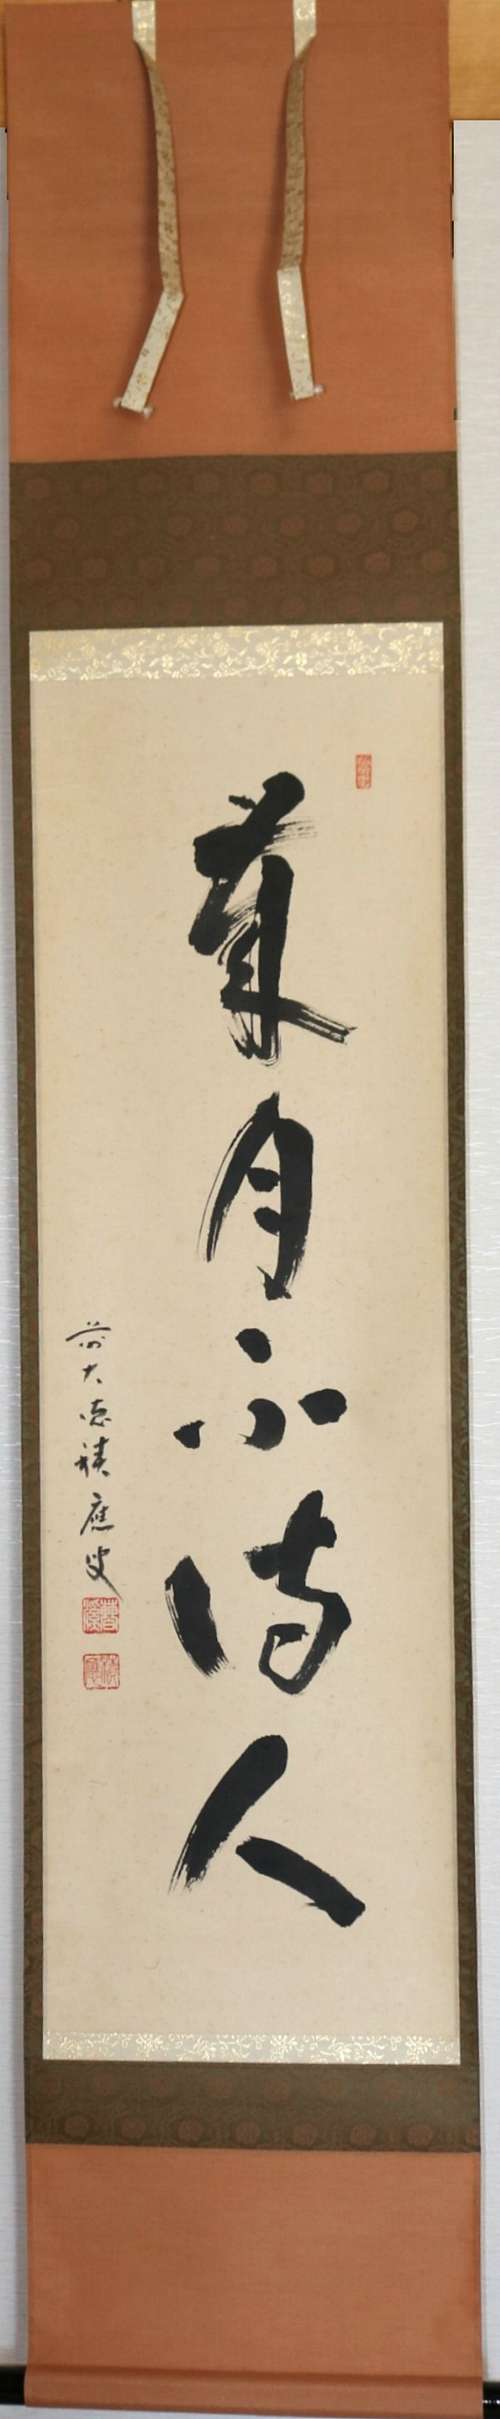 歳月不待人
前大徳積應叟